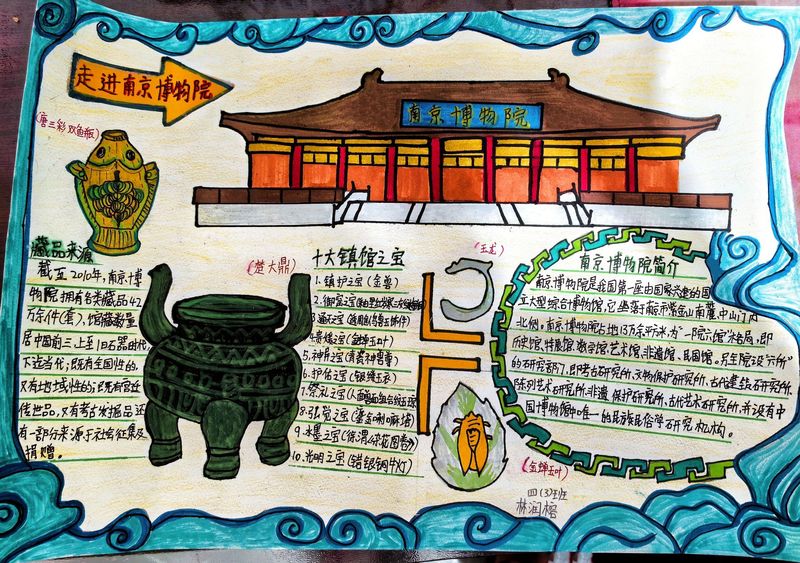 走进南京博物院
南京博物院
(唐三彩双鱼瓶)
藏品来源
截至2010年,南京博
物院拥有各类藏品42
万余件(套),馆藏数量
居中国前三,上至旧石器时代,
下迄当代;既有全国性的,
又有地域性的;既有宫廷
传世品,又有考古发掘品,还
有一部分来源于社会征集及
捐赠。
(楚大鼎)
十大镇馆之宝
1.镇护之宝(金兽)
4.高洁之宝(金蝉玉叶)
5.神兽之宝(青瓷神兽尊)
6.护佑之宝(银缕玉衣)
10.光明之宝(错银铜牛灯)
(玉龙)
(金蝉玉叶)
南京博物院简介
南京博物院是我国第一座由国家兴建的国
立大型综合博物馆,它坐落于南京市紫金山南麓中山门内
北侧。南京博物院占地13万余平方米,为"一院六馆"格局,即
历史馆、特展馆、数字馆、艺术馆、非遗馆、民国馆。另全院设"六所"
的研究部门,即考古研究所、文物保护研究所、古代建筑研究所、
陈列艺术研究所、非遗保护研究所、古代艺术研究所,并设有中
国博物馆中唯一的民族民俗学研究机构。
四(3)班
林润榕